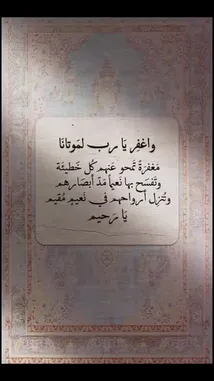 واغفر يَا رب لمَوتانَا
مَغفرَةً تَمحو عَنهم كُل خَطيئَة
وتَفسَح بهَا نَعيماً مَدّ أبصَارهم
وتُنزل أرواحهم في نَعيمٍ مُقيم
يَا رَحيم